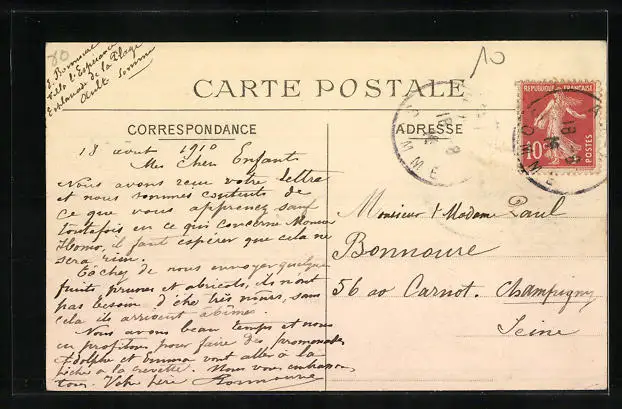 80
10
E. Bonnoure
Villa l'Espérance
Esplanade de la Plage
Ault Somme
CARTE POSTALE
CORRESPONDANCE
ADRESSE
18 aout 1910
Mes Chers Enfants
Nous avons reçu votre lettre
et nous sommes contents de
ce que vous apprenez sauf
toutefois en ce qui concerne
Homo, il faut espérer que cela ne
sera rien.
Tâchez de nous envoyer quelques
fruits, prunes et abricots, ils n'ont
pas besoin d'être très mûrs, sans
cela ils arrivent abîmés.
Nous avons beau temps et nous
en profitons pour faire des promenades
Adolphe et Emma vont aller à la
pêche à la crevette. Nous vous embrassons
tous. Votre père Bonnoure
Monsieur & Madame Paul
Bonnoure
56 av Carnot. Champigny
Seine
REPUBLIQUE FRANÇAISE
10c
POSTES
18 8
SOMME
18 8
SOMME